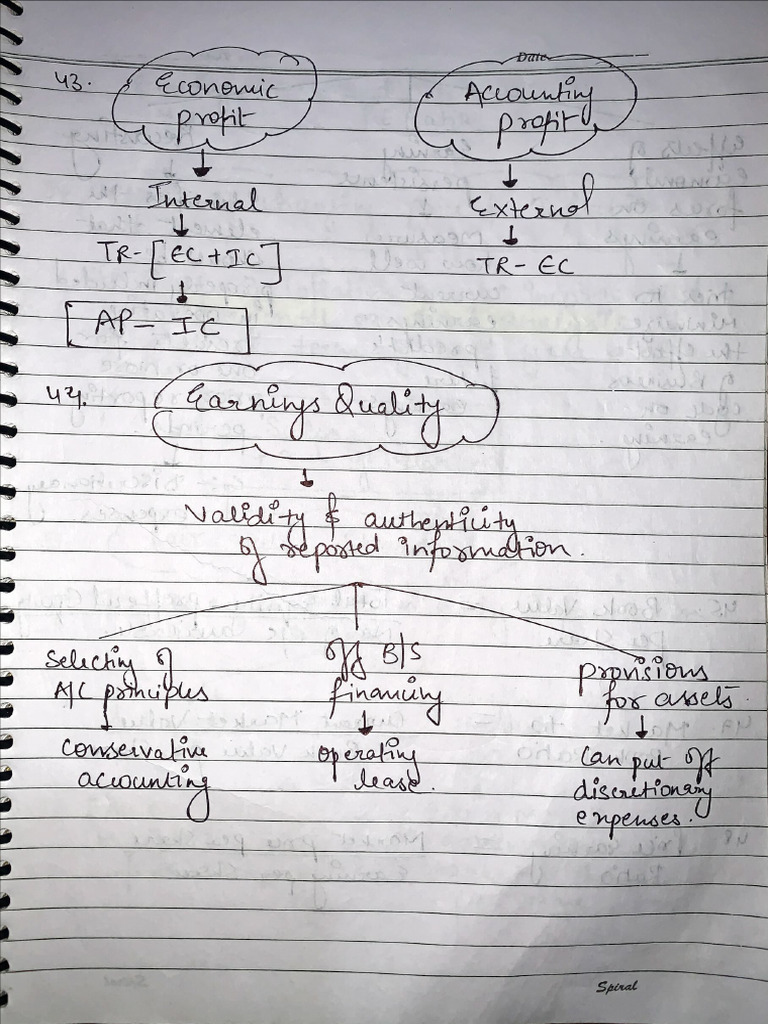 Date
43.
Economic
profit
Accounting
profit
Internal
External
TR- [EC + IC]
TR- EC
[AP - IC]
44.
Earnings Quality
Validity & authenticity
of reported information.
Selecting of
A/C principles
off B/S
financing
provisions
for assets.
conservative
accounting
operating
lease.
Can put off
discretionary
expenses.
Spiral